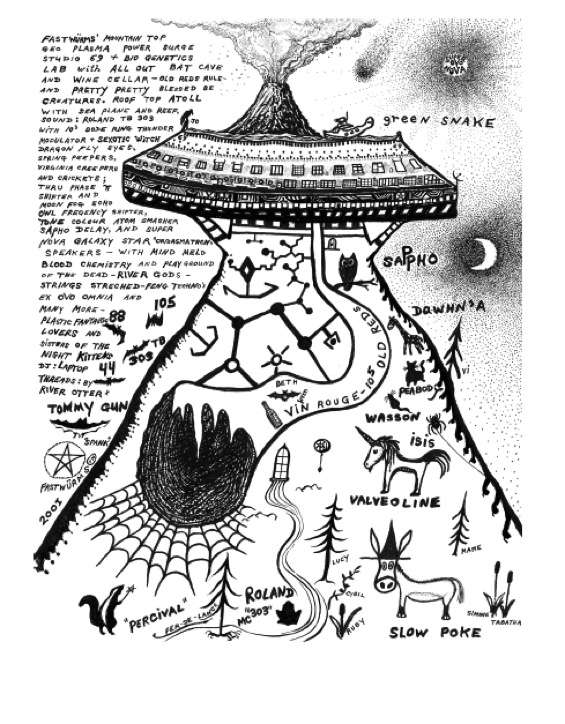 FASTWÜRMS' MOUNTAIN TOP
GEO PLASMA POWER SURGE
STUDIO 69 + BIO GENETICS
LAB with ALL OUT BAT CAVE
AND WINE CELLAR - OLD REDS RULE-
AND PRETTY PRETTY BLENDED BE
CREATURES. ROOF TOP ATOLL
WITH SEA PLANE AND REEF.
SOUND: ROLAND TB 303
WITH 10'S BODE RING THUNDER
MODULATOR + SEXOTIC WITCH
DRAGON FLY EYES.
SPRING PEEPERS,
VIRGINIA CREEPERS
AND CRICKETS;
THRU PHASE
SHIFTER AND
MOON FOG ECHO
OWL FREQENCY SHIFTER,
TONE COLOUR ATOM SMASHER
SAPHO DELAY, AND SUPER
NOVA GALAXY STAR "ORGASMATRON"
SPEAKERS - WITH MIND MELD
BLOOD CHEMISTRY AND PLAYGROUND
OF THE DEAD - RIVER GODS -
STRINGS STRECHED - FENG TECHNO'S
EX OVO OMNIA AND
MANY MORE -
PLASTIC FANTASTIC
LOVERS AND
SISTERS OF THE
NIGHT KITTENS
DJ: LAPTOP
THREADS: BY
RIVER OTTER
88
105
TB
303
44
TOMMY GUN
"SPANK"
FASTWÜRMS ©
2003
JO
NOVA
green SNAKE
SAPPHO
DAWHN'A
VI
PEABODY
WASSON
ISIS
BETH
VIN ROUGE - 105 OLD REDS
VALVEOLINE
MARIE
LUCY
CYBIL
RUBY
SIMONE
TABATHA
"PERCIVAL"
FER-DE-LANCE
ROLAND
"MC303"
SLOW POKE